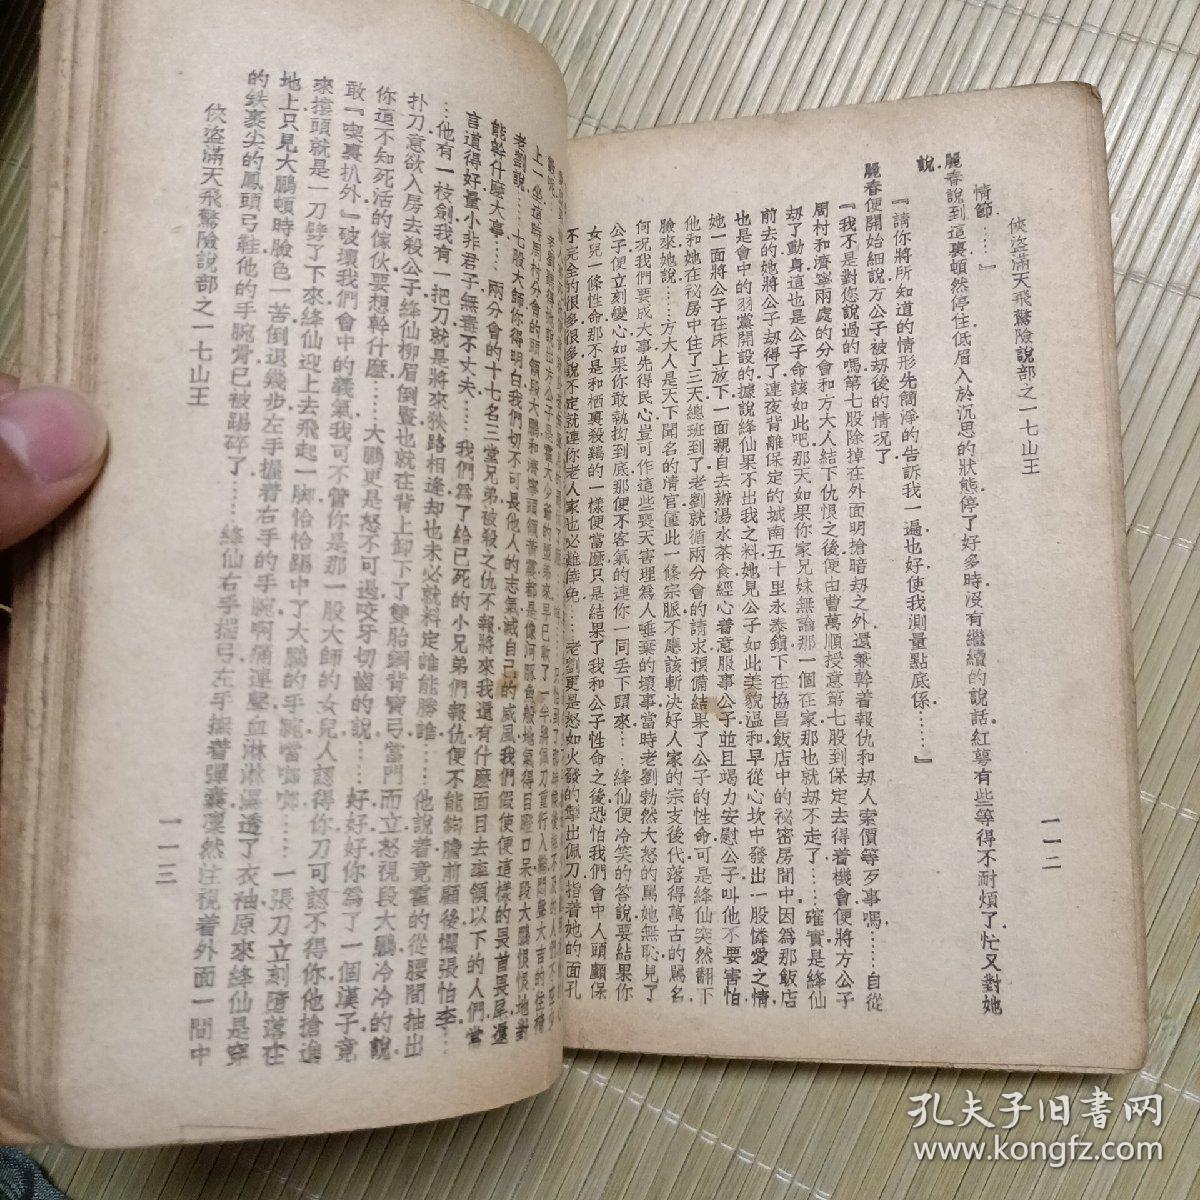 俠盜滿天飛驚險說部之一七山王
一一二
情節……』
麗春說到這裏頓然停住低眉入於沉思的狀態停了好多時沒有繼續的說話紅蕚有些等得不耐煩了忙又對她
說
『請你將所知道的情形先簡淨的告訴我一遍也好使我測量點底係……』
麗春便開始細說方公子被刼後的情況了
『我不是對您說過的嗎第七股除掉在外面明搶暗刼之外還兼幹着報仇和刼人索價等歹事嗎……自從
周村和濟寧兩處的分會和方大人結下仇恨之後便由曹萬順授意第七股到保定去得着機會便將方公子
刼了動身這也是公子命該如此吧那天如果你家兄妹無論那一個在家那也就刼不走了……確實是絳仙
前去的她將公子刼得了連夜背離保定的城南五十里永泰鎮下在協昌飯店中的祕密房間中因爲那飯店
也是會中的羽黨開設的據說絳仙果不出我之料她見公子如此美貌溫和早從心坎中發出一股憐愛之情
她一面將公子在床上放下一面親自去辦湯水茶食經心着意服事公子並且竭力安慰公子叫他不要害怕
他和她在祕房中住了三天總班到了老劉就循兩分會的請求預備結果了公子的性命可是絳仙突然翻下
臉來她說……方大人是天下聞名的清官僅此一條宗脈不應該斬决好人家的宗支後代落得萬古的駡名
何況我們要成大事先得民心豈可作這些喪天害理爲人唾棄的壞事當時老劉勃然大怒的駡她無恥見了
公子便立刻變心如果你敢執拗到底那便不客氣的連你一同丟下頭來……絳仙便冷笑的答說要結果你
女兒一條性命那不是和栖裏殺鷄的一樣便當麽只是結果了我和公子性命之後恐怕我們會中人頭顱保
不完全的很多很多說不定就連你老人家也必難倖免……老劉更是怒如火發的掣出佩刀指着她的面孔
上一坐這時周村分會的頭領段大鵬和濟寧頭領
老劉說……七股大師你得明白我們切不可長他人的志氣滅自己的威風我們假使便這樣的畏首畏尾還
能幹什麽大事……兩分會的十七名三堂兄弟被殺之仇不報將來我還有什麽面目去率領以下的人們常
言道得好量小非君子無毒不丈夫……我們爲了給已死的小兄弟們報仇便不能夠瞻前顧後懼張怕李…
…他有一枝劍我有一把刀就是將來狹路相逢却也未必就料定誰能勝誰……他說着竟霍的從腰間抽出
扑刀意欲入房去殺公子絳仙柳眉倒豎也就在背上卸下了雙胎鋼背寶弓當門而立怒視段大鵬冷冷的說
你這不知死活的傢伙要想幹什麽……大鵬更是怒不可過咬牙切齒的說……好好好你爲了一個漢子竟
敢『喫裏扒外』破壞我們會中的義氣我可不管你是那一股大師的女兒人認得你刀可認不得你他搶進
來摟頭就是一刀劈了下來絳仙迎上去飛起一脚恰恰踢中了大鵬的手腕當啷啷…一張刀立刻墮落在
地上只見大鵬頓時臉色一苦倒退幾步左手握着右手的手腕啊痛連聲血淋淋濕透了衣袖原來絳仙是穿
的鉄裹尖的鳳頭弓鞋他的手腕骨已被踢碎了……絳仙右手搭弓左手撫着彈囊凛然注視着外面一間中
俠盜滿天飛驚險說部之一七山王
一一三
孔夫子旧書网
www.kongfz.com